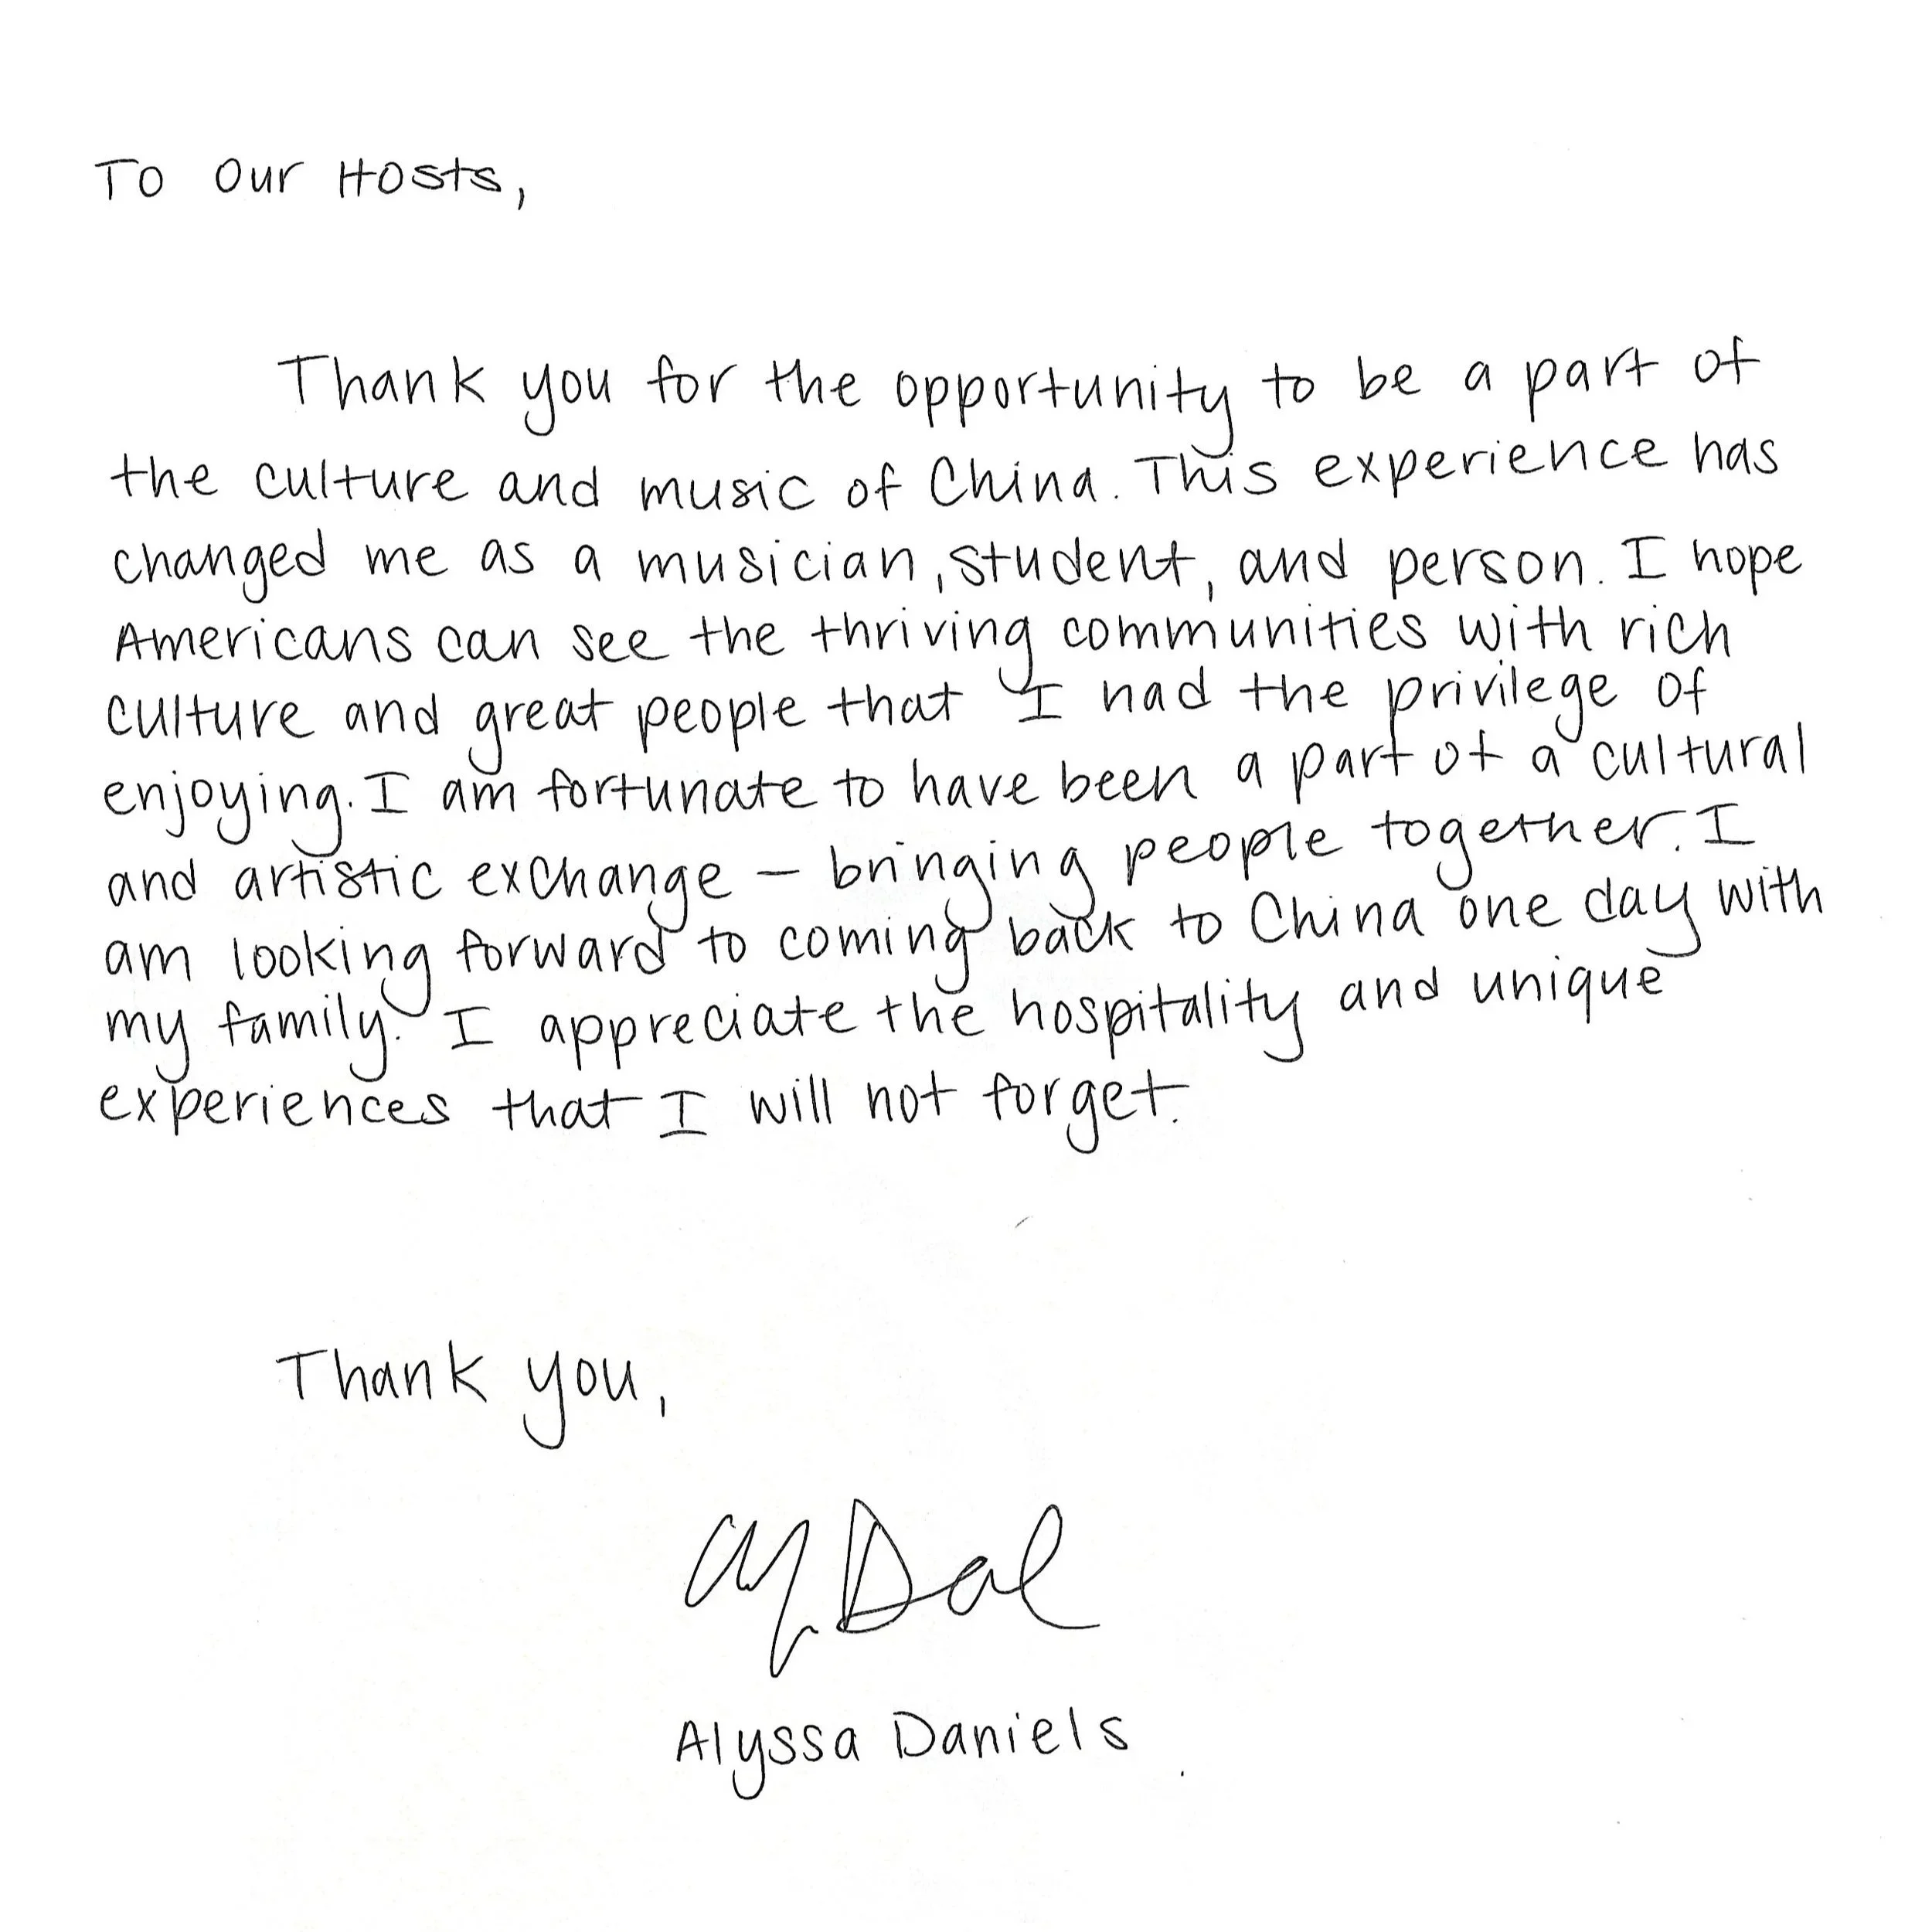 To Our Hosts,
Thank you for the opportunity to be a part of
the culture and music of China. This experience has
changed me as a musician, student, and person. I hope
Americans can see the thriving communities with rich
culture and great people that I had the privilege of
enjoying. I am fortunate to have been a part of a cultural
and artistic exchange – bringing people together. I
am looking forward to coming back to China one day with
my family. I appreciate the hospitality and unique
experiences that I will not forget.
Thank you,
Alyssa Daniels